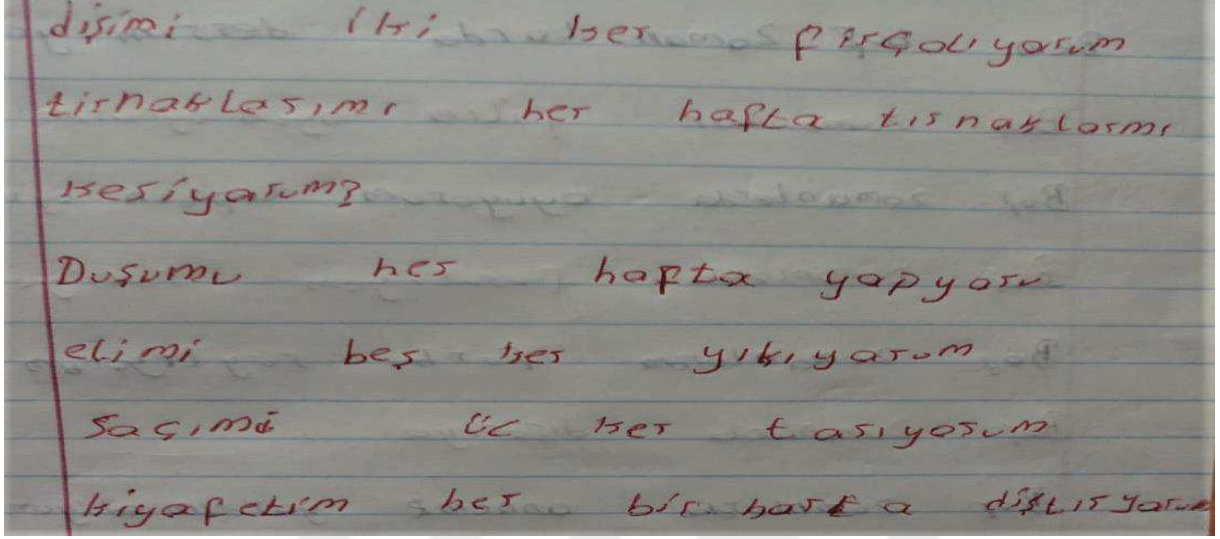 dişimi iki ker fırçalıyorum
tirnaklarımı her hafta tırnaklarmı
kesiyarum?
Duşumu her hafta yapyoru
elimi beş ker yıkıyarum
Saçımı üc ker tarıyorum
kiyafetim her bir harta diştiryorum